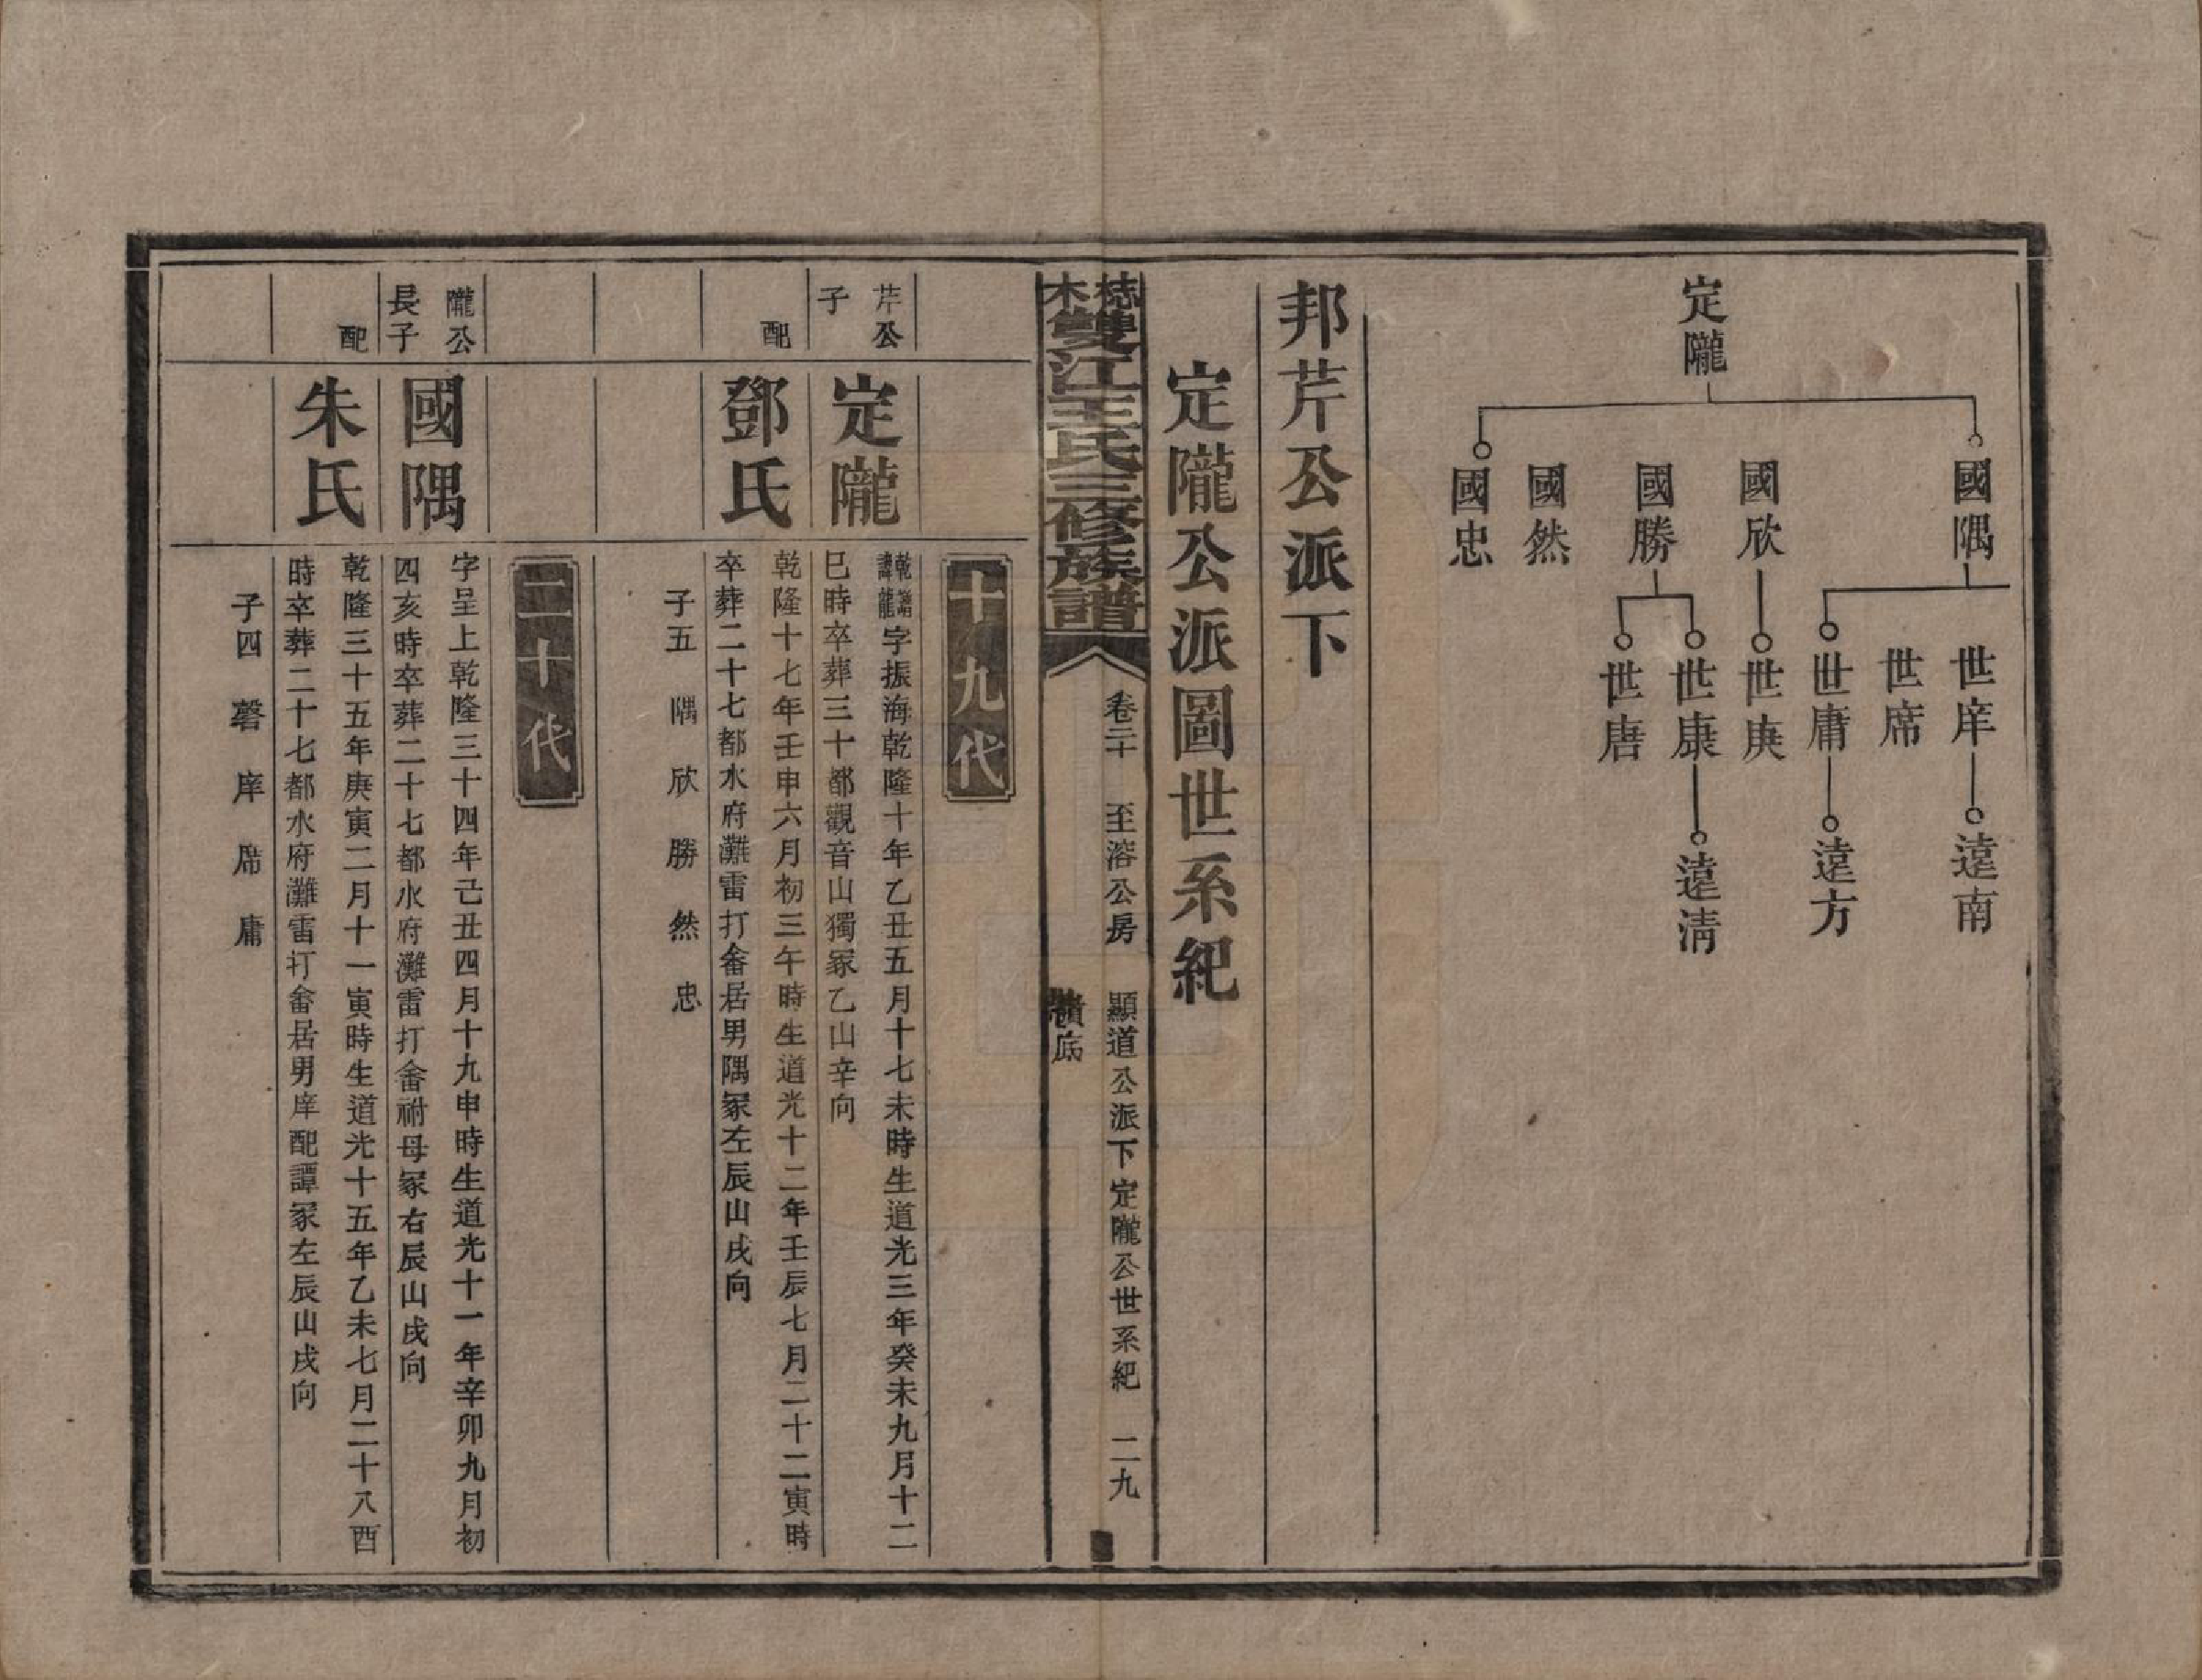 定隴
國隅
國欣
國勝
國然
國忠
世庠
世席
世庸
世庚
世康
世唐
遠南
遠方
遠清
邦芹公派下
定隴公派圖世系紀
雙江王氏三修族譜
卷二十 至溶公房 顯道公派下定隴公世系紀 二九
十九代
芹公子
定隴
乾譜諱龍字振海乾隆十年乙丑五月十七未時生道光三年癸未九月十二
巳時卒葬三十都觀音山獨冢乙山辛向
配
鄧氏
乾隆十七年壬申六月初三午時生道光十二年壬辰七月二十二寅時
卒葬二十七都水府灘雷打畬居男隅冢左辰山戌向
子五 隅 欣 勝 然 忠
二十代
隴公長子
國隅
字呈上乾隆三十四年己丑四月十九申時生道光十一年辛卯九月初
四亥時卒葬二十七都水府灘雷打畬祔母冢右辰山戌向
配
朱氏
乾隆三十五年庚寅二月十一寅時生道光十五年乙未七月二十八酉
時卒葬二十七都水府灘雷打畬居男庠配譚冢左辰山戌向
子四 庠 席 庸